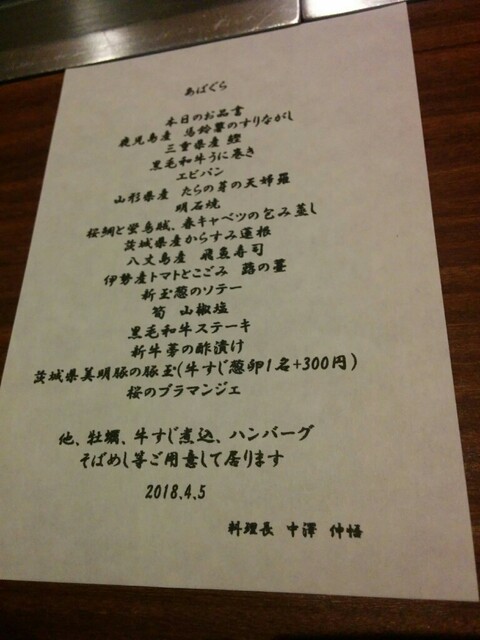 あばぐら
本日のお品書
鹿児島産 馬鈴薯のすりながし
三重県産 鰹
黒毛和牛うに巻き
エビパン
山形県産 たらの芽の天婦羅
明石焼
桜鯛と蛍烏賊、春キャベツの包み蒸し
茨城県産からすみ蓮根
八丈島産 飛魚寿司
伊勢産トマトとこごみ 蕗の薹
新玉葱のソテー
筍 山椒塩
黒毛和牛ステーキ
新牛蒡の酢漬け
茨城県美明豚の豚玉(牛すじ葱卵1名+300円)
桜のブラマンジェ
他、牡蠣、牛すじ煮込、ハンバーグ
そばめし等ご用意して居ります
2018.4.5
料理長 中澤 仲悟